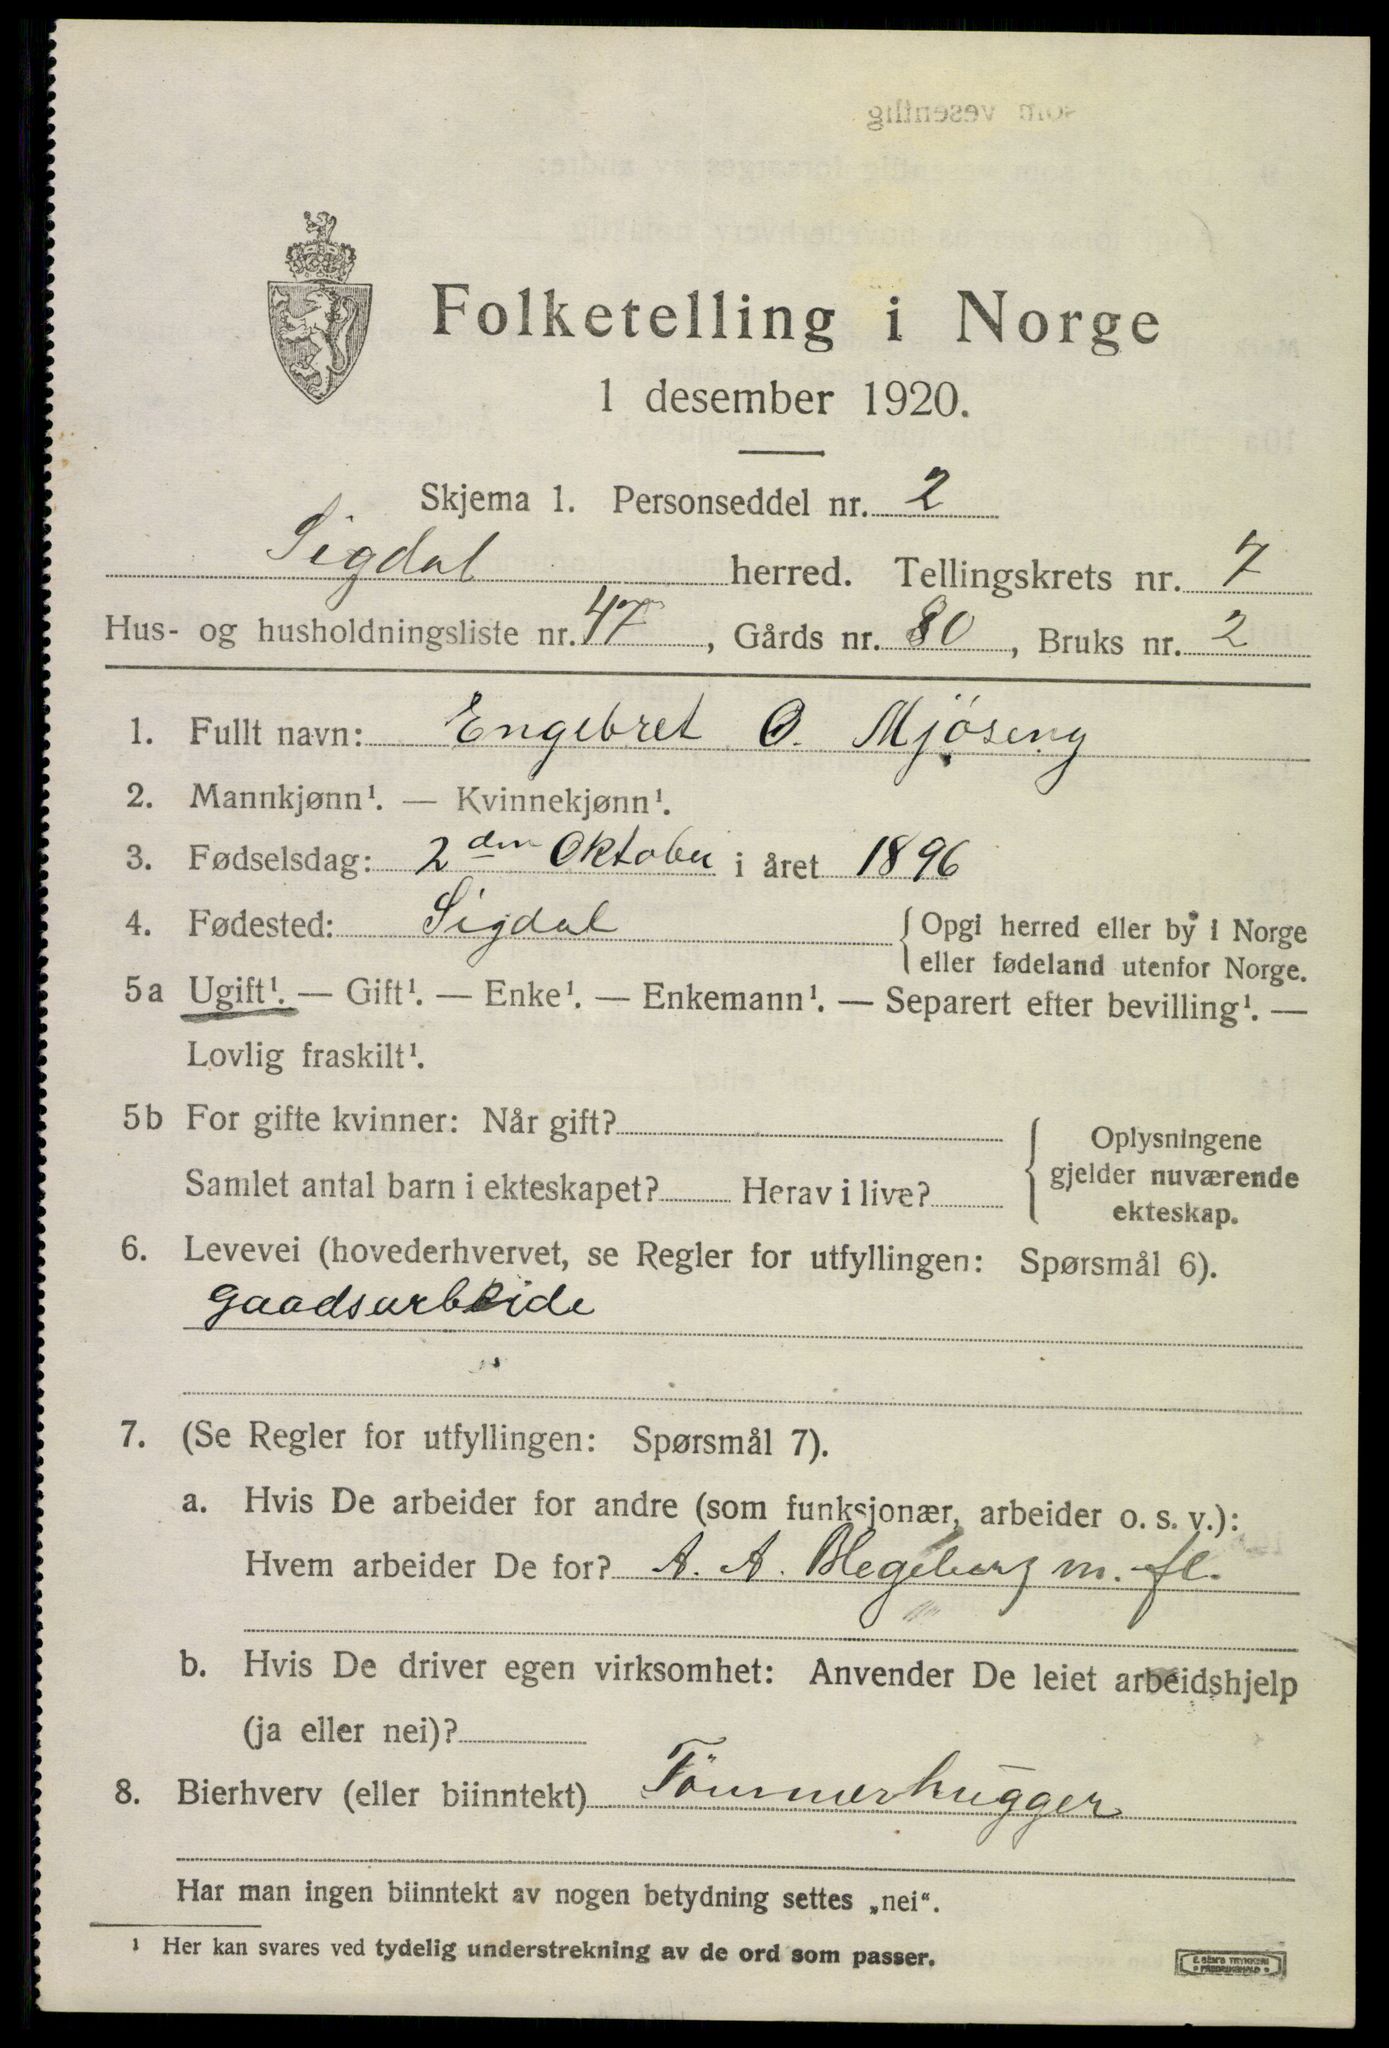 Folketelling i Norge
1 desember 1920.
Skjema 1. Personseddel nr. 2
Sigdal herred. Tellingskrets nr. 7
Hus- og husholdningsliste nr. 47, Gårds nr. 80, Bruks nr. 2
1. Fullt navn: Engebret O. Mjöseng
2. Mannkjønn¹. — Kvinnekjønn¹.
3. Fødselsdag: 2den Oktober i året 1896
4. Fødested: Sigdal {Opgi herred eller by i Norge
eller fødeland utenfor Norge.
5a Ugift¹. — Gift¹. — Enke¹. — Enkemann¹. — Separert efter bevilling¹. —
Lovlig fraskilt¹.
5b For gifte kvinner: Når gift?
Samlet antal barn i ekteskapet? Herav i live?
{Oplysningene
gjelder nuværende
ekteskap.
6. Levevei (hovederhvervet, se Regler for utfyllingen: Spørsmål 6).
gaadsarbeide
7. (Se Regler for utfyllingen: Spørsmål 7).
a. Hvis De arbeider for andre (som funksjonær, arbeider o. s. v.):
Hvem arbeider De for? A. A. Blegeberg m. fl.
b. Hvis De driver egen virksomhet: Anvender De leiet arbeidshjelp
(ja eller nei)?
8. Bierhverv (eller biinntekt) Tömmerhugger
Har man ingen biinntekt av nogen betydning settes „nei“.
¹ Her kan svares ved tydelig understrekning av de ord som passer.